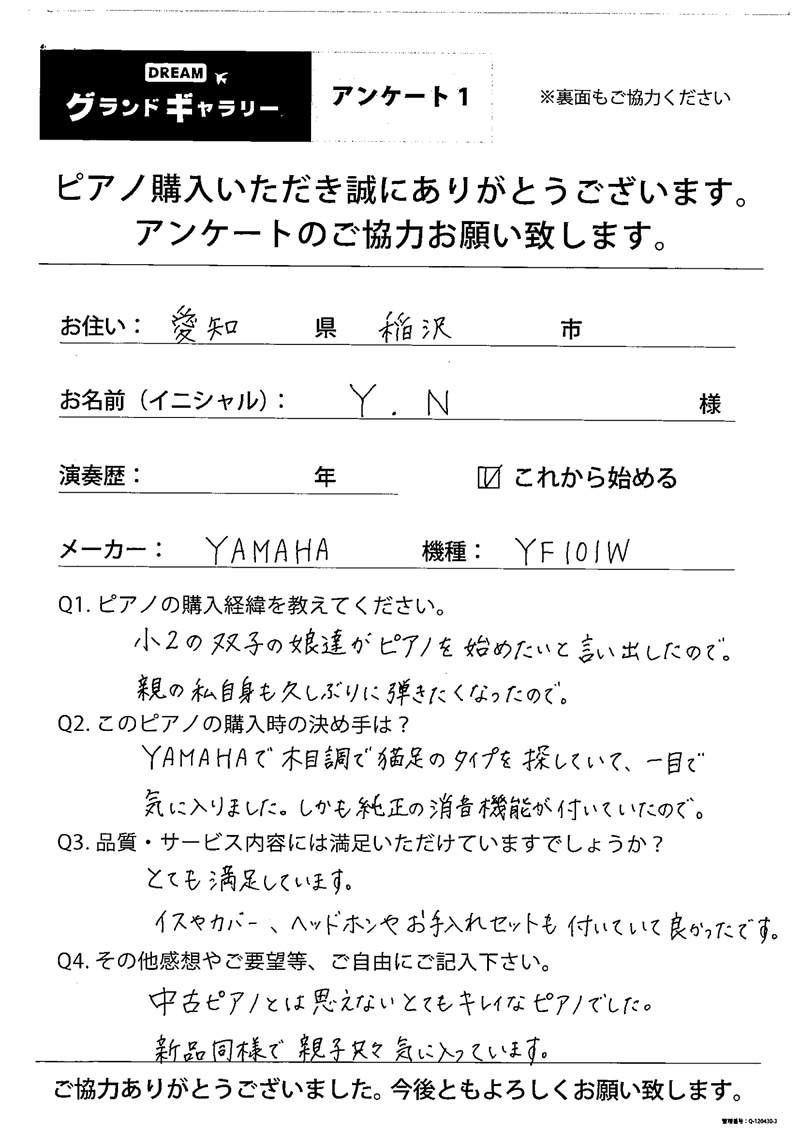 DREAM
グランドギャラリー
アンケート1
※裏面もご協力ください
ピアノ購入いただき誠にありがとうございます。
アンケートのご協力お願い致します。
お住い： 愛知 県 稲沢 市
お名前（イニシャル）： Y.N 様
演奏歴： 年 ☑ これから始める
メーカー： YAMAHA 機種： YF101W
Q1. ピアノの購入経緯を教えてください。
小2の双子の娘達がピアノを始めたいと言い出したので。
親の私自身も久しぶりに弾きたくなったので。
Q2. このピアノの購入時の決め手は？
YAMAHAで木目調で猫足のタイプを探していて、一目で
気に入りました。しかも純正の消音機能が付いていたので。
Q3. 品質・サービス内容には満足いただけていますでしょうか？
とても満足しています。
イスやカバー、ヘッドホンやお手入れセットも付いていて良かったです。
Q4. その他感想やご要望等、ご自由にご記入下さい。
中古ピアノとは思えないとてもキレイなピアノでした。
新品同様で親子共々気に入っています。
ご協力ありがとうございました。今後ともよろしくお願い致します。
管理番号：Q-120430-3